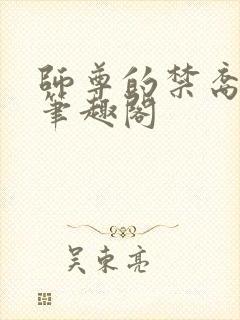 師尊的禁脔
筆趣閣
吴東亮